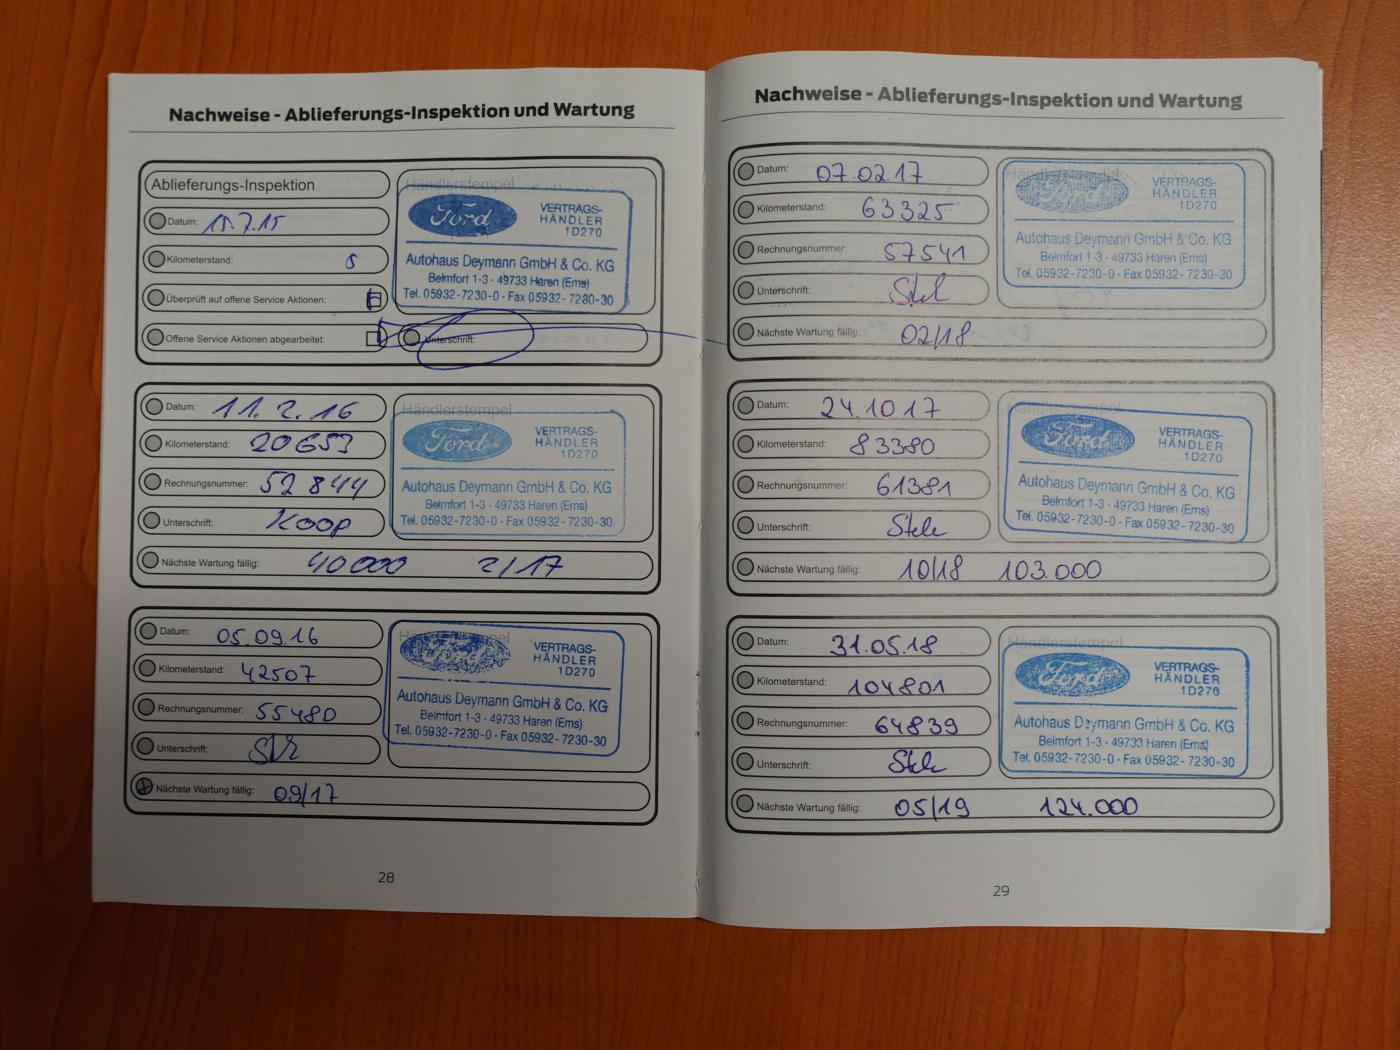 Nachweise - Ablieferungs-Inspektion und Wartung
Ablieferungs-Inspektion
Datum: 15.7.15
Kilometerstand: 5
Überprüft auf offene Service Aktionen:
Offene Service Aktionen abgearbeitet:
Händlerstempel
Ford
VERTRAGS-
HÄNDLER
1D270
Autohaus Deymann GmbH & Co. KG
Belmfort 1-3 - 49733 Haren (Ems)
Tel. 05932-7230-0 · Fax 05932-7230-30
Unterschrift:
Datum: 11.2.16
Kilometerstand: 20653
Rechnungsnummer: 52844
Unterschrift: Koop
Händlerstempel
Ford
VERTRAGS-
HÄNDLER
1D270
Autohaus Deymann GmbH & Co. KG
Belmfort 1-3 - 49733 Haren (Ems)
Tel. 05932-7230-0 · Fax 05932-7230-30
Nächste Wartung fällig: 40000 2/17
Datum: 05.09.16
Kilometerstand: 42507
Rechnungsnummer: 55480
Unterschrift:
Händlerstempel
Ford
VERTRAGS-
HÄNDLER
1D270
Autohaus Deymann GmbH & Co. KG
Belmfort 1-3 - 49733 Haren (Ems)
Tel. 05932-7230-0 · Fax 05932-7230-30
Nächste Wartung fällig: 09/17
28
Nachweise - Ablieferungs-Inspektion und Wartung
Datum: 07.02.17
Kilometerstand: 63325
Rechnungsnummer: 57541
Unterschrift:
Händlerstempel
Ford
VERTRAGS-
HÄNDLER
1D270
Autohaus Deymann GmbH & Co. KG
Belmfort 1-3 - 49733 Haren (Ems)
Tel. 05932-7230-0 · Fax 05932-7230-30
Nächste Wartung fällig: 02/18
Datum: 24.10.17
Kilometerstand: 83380
Rechnungsnummer: 61381
Unterschrift:
Händlerstempel
Ford
VERTRAGS-
HÄNDLER
1D270
Autohaus Deymann GmbH & Co. KG
Belmfort 1-3 - 49733 Haren (Ems)
Tel. 05932-7230-0 · Fax 05932-7230-30
Nächste Wartung fällig: 10/18 103.000
Datum: 31.05.18
Kilometerstand: 104801
Rechnungsnummer: 64839
Unterschrift:
Händlerstempel
Ford
VERTRAGS-
HÄNDLER
1D270
Autohaus Deymann GmbH & Co. KG
Belmfort 1-3 - 49733 Haren (Ems)
Tel. 05932-7230-0 · Fax 05932-7230-30
Nächste Wartung fällig: 05/19 124.000
29